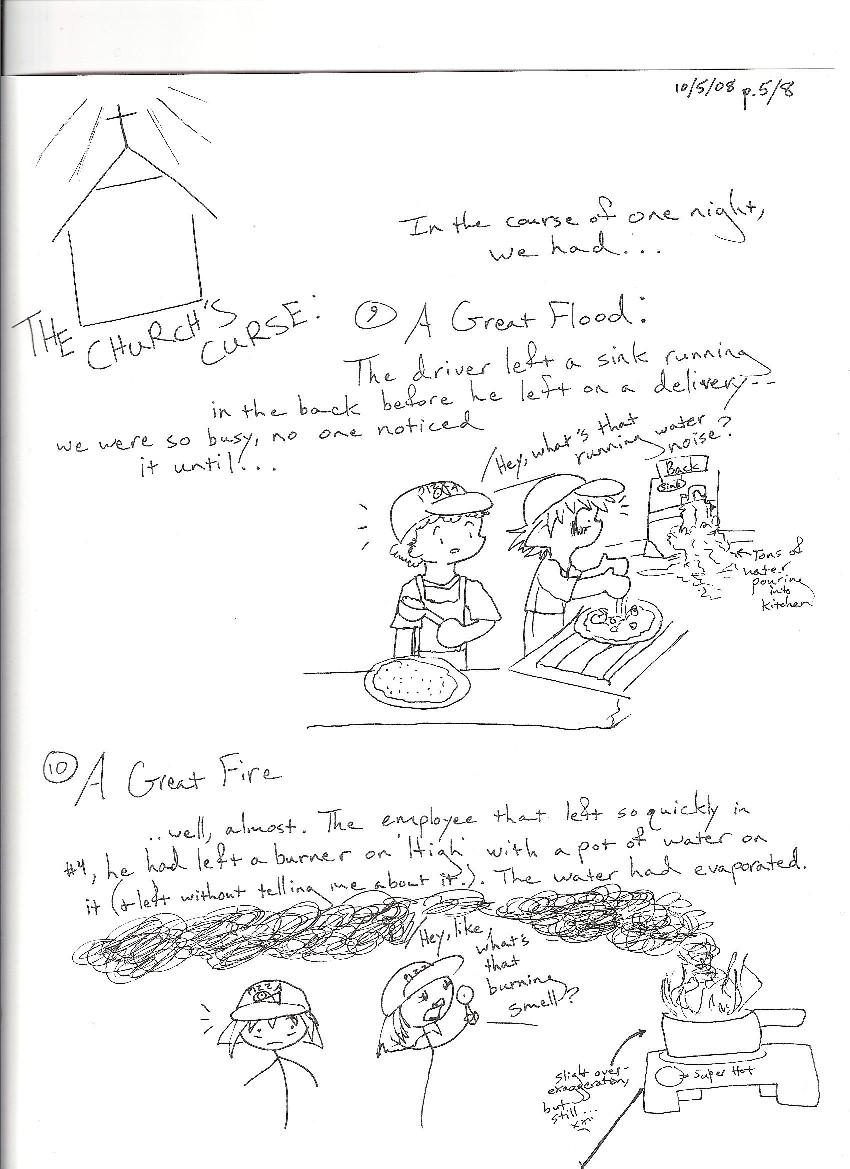 10/5/08 p.5/8
In the course of one night,
we had...
THE CHURCH'S CURSE:
⑨ A Great Flood:
The driver left a sink running
in the back before he left on a delivery--
we were so busy, no one noticed
it until...
Hey, what's that
running water
noise?
Back
Sink
PIZZA
Tons of
water
pouring
into
kitchen
⑩ A Great Fire
...well, almost. The employee that left so quickly in
#4, he had left a burner on 'High' with a pot of water on
it (& left without telling me about it!). The water had evaporated.
Hey, like,
what's
that
burning
smell?
PIZZA
PIZZ
Super Hot
slight over-
exaggeratory
but
still...